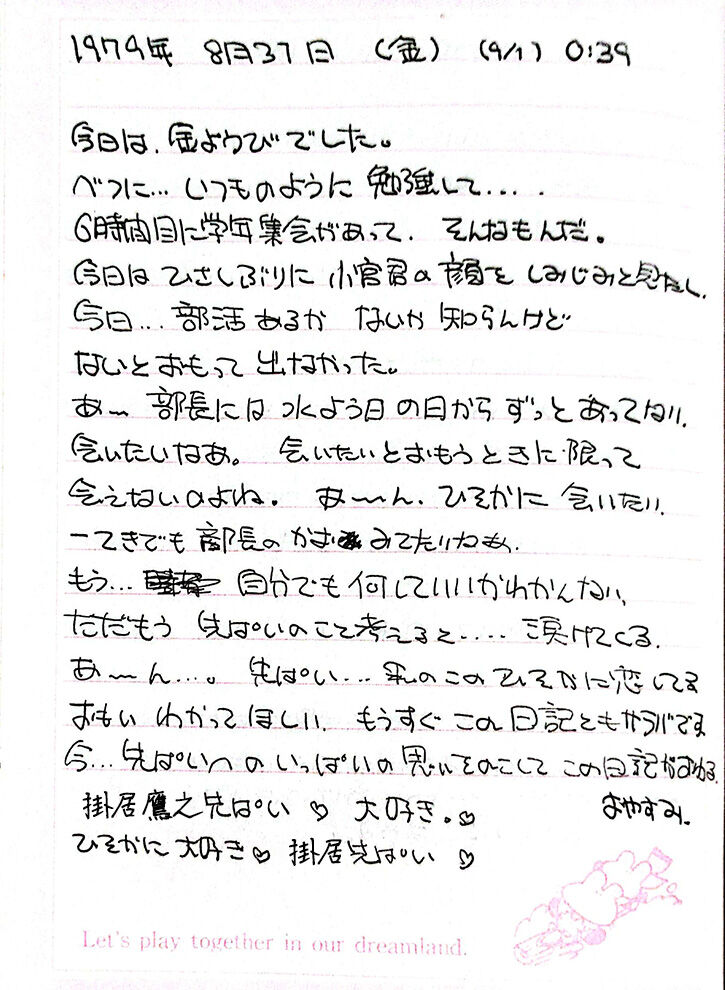 1979年 8月31日 (金) (9/1) 0:39
今日は、金ようびでした。
べつに… いつものように 勉強して‥‥.
6時間目に学年集会があって、そんなもんだ。
今日は ひさしぶりに 小宮君の顔を しみじみと見たし、
今日… 部活あるか ないか 知らんけど
ないとおもって 出なかった。
あ〜 部長には 水よう日の日から ずっと あってない、
会いたいなあ。 会いたいとおもうときに 限って
会えないのよね。 あ〜〜ん、ひそかに 会いたい、
一てきでも 部長の かお みてたいねぇ、
もう… 自分でも何していいかわかんない、
ただもう 先ぱいのこと考えると‥‥ 涙げてくる、
あ〜〜ん…。 先ぱい… 私のこのひそかに恋してる
おもい わかってほしい、 もうすぐ この日記ともわらばです
今… 先ぱいへの いっぱいの思いをのこして この日記がおわる、
掛居鷹之先ぱい ♡ 大好き。♡ おやすみ、
ひそかに 大好き♡ 掛居先ぱい ♡
Let's play together in our dreamland.